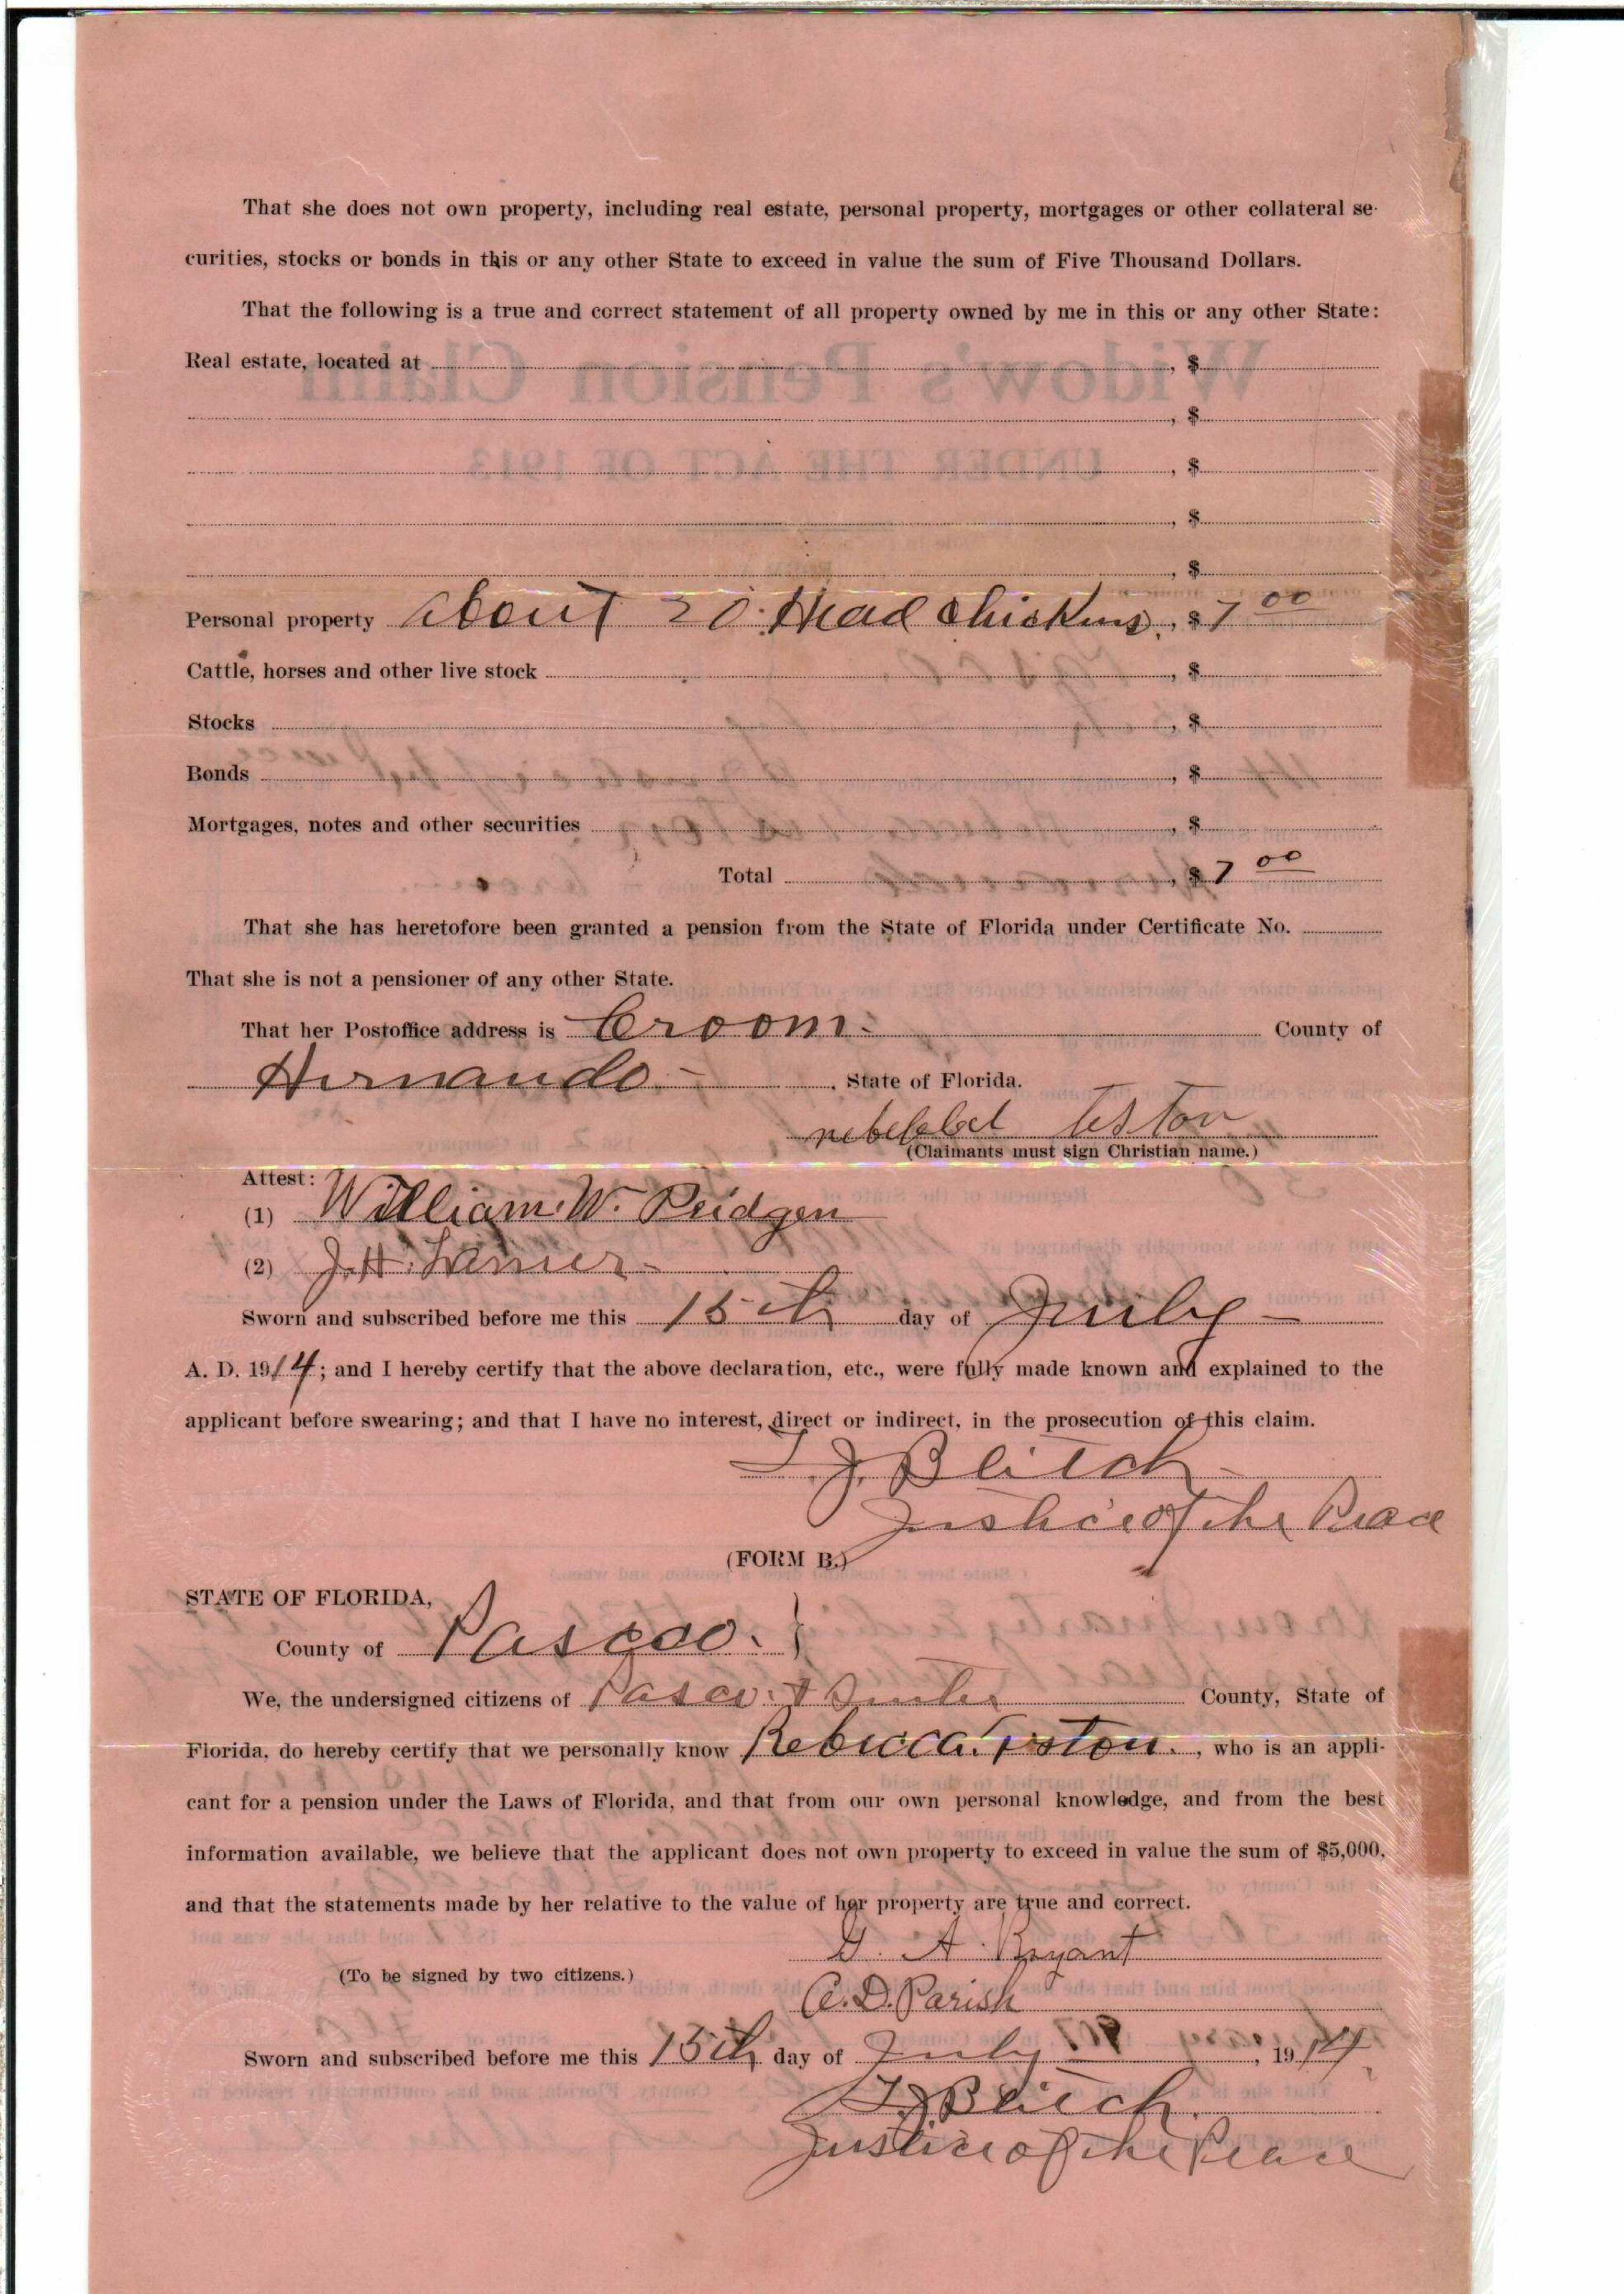 That she does not own property, including real estate, personal property, mortgages or other collateral se-
curities, stocks or bonds in this or any other State to exceed in value the sum of Five Thousand Dollars.
That the following is a true and correct statement of all property owned by me in this or any other State:
Real estate, located at , $
, $
, $
, $
, $
Personal property About 20 Head Chickens, $7 00
Cattle, horses and other live stock , $
Stocks , $
Bonds , $
Mortgages, notes and other securities , $
Total , $7 00
That she has heretofore been granted a pension from the State of Florida under Certificate No.
That she is not a pensioner of any other State.
That her Postoffice address is Croom County of
Hernando , State of Florida.
(Claimants must sign Christian name.)
Attest:
(1) William W. Pridgen
(2) J. H.
Sworn and subscribed before me this 15th day of July
A. D. 1914; and I hereby certify that the above declaration, etc., were fully made known and explained to the
applicant before swearing; and that I have no interest, direct or indirect, in the prosecution of this claim.
J Blitch
Justice of the Peace
(FORM B.)
STATE OF FLORIDA,
County of Pasco. }
We, the undersigned citizens of Pasco & County, State of
Florida, do hereby certify that we personally know Rebecca , who is an appli-
cant for a pension under the Laws of Florida, and that from our own personal knowledge, and from the best
information available, we believe that the applicant does not own property to exceed in value the sum of $5,000,
and that the statements made by her relative to the value of her property are true and correct.
A. Bryant
(To be signed by two citizens.)
C. D. Parish
Sworn and subscribed before me this 15th day of July , 1914
J Blitch
Justice of the Peace